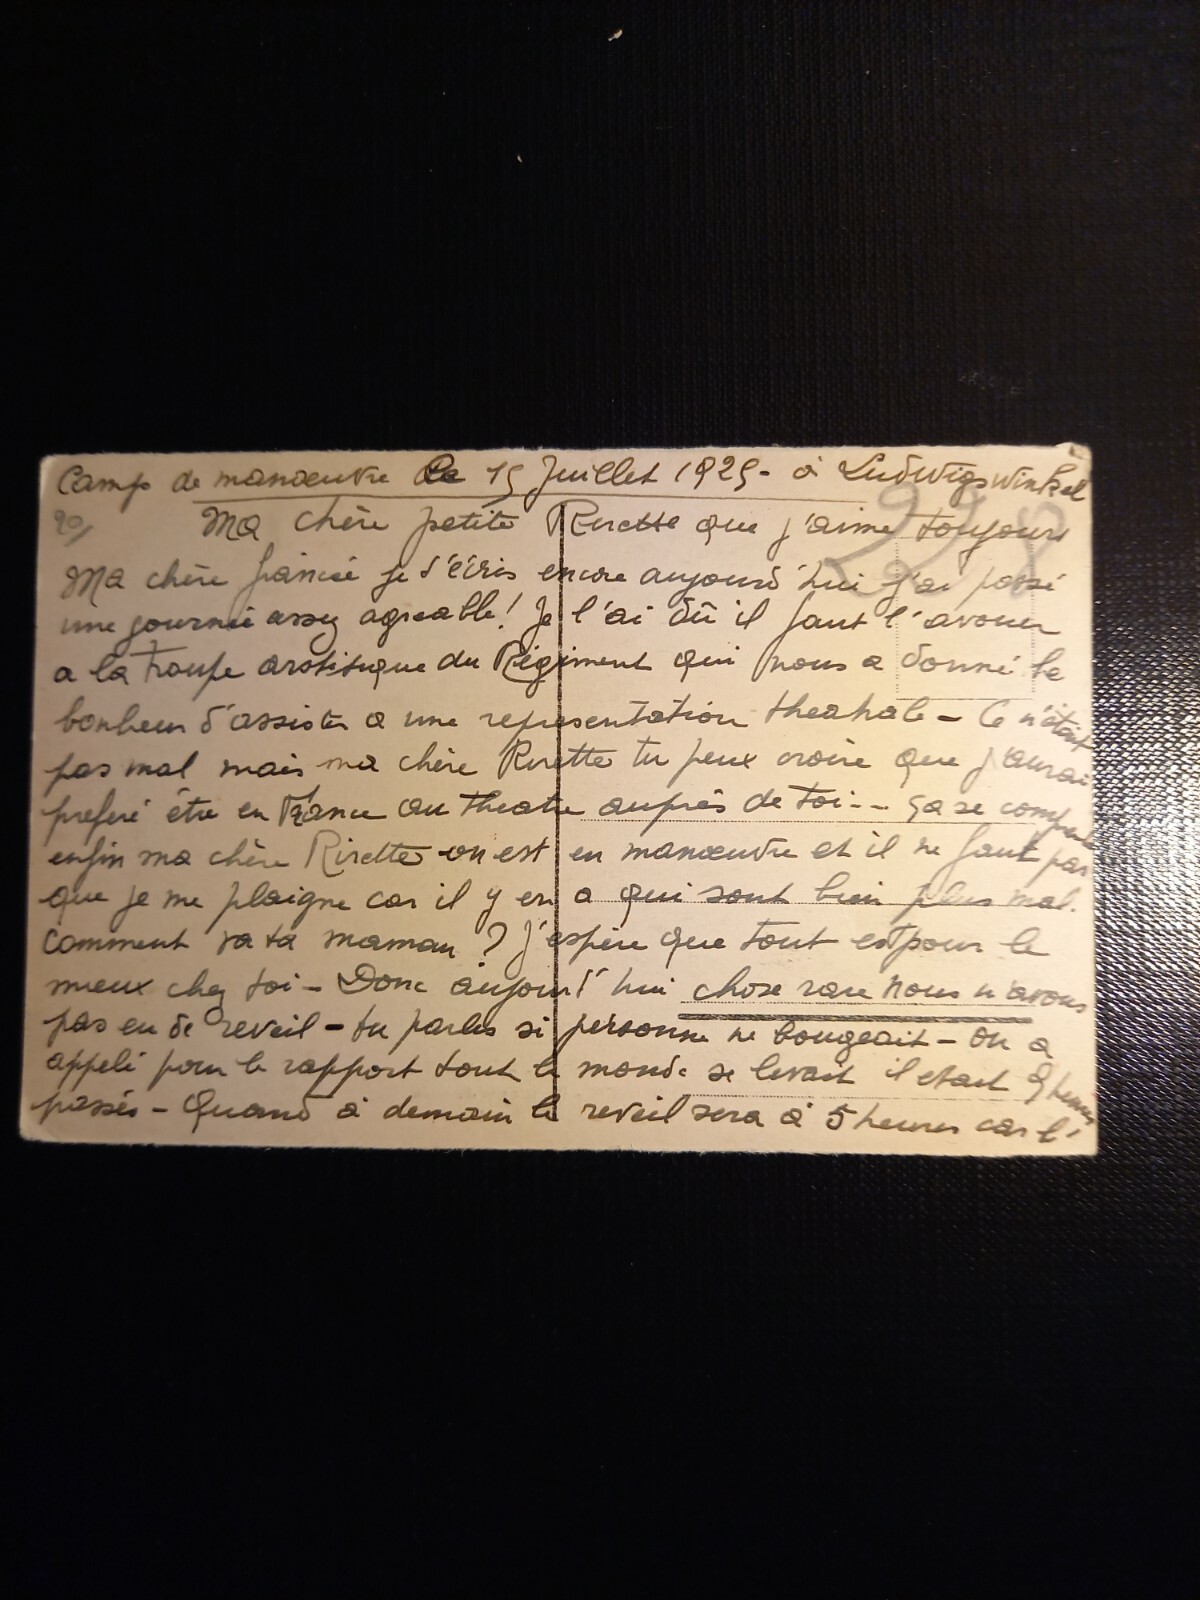 Camp de manœuvre le 15 Juillet 1925 - à Ludwigswinkel
Ma chère petite Rirette que j'aime toujours
Ma chère fiancée je t'écris encore aujourd'hui j'ai passé
une journée assez agreable! Je l'ai dû il faut l'avouer
a la troupe artistique du Régiment qui nous a donné le
bonheur d'assister a une representation theatrale - Ce n'était
pas mal mais ma chère Rirette tu peux croire que j'aurai
preferé être en France au theatre auprès de toi -- ça se comprend
enfin ma chère Rirette on est en manœuvre et il ne faut pas
que je me plaigne car il y en a qui sont bien plus mal.
Comment va ta maman ? J'espère que tout est pour le
mieux chez toi - Donc aujourd'hui chose rare nous n'avons
pas eu de reveil - tu parles si personne ne bougeait - On a
appelé pour le rapport tout le monde se levait il etait 9 heures
passés - Quand à demain le reveil sera à 5 heures car l'